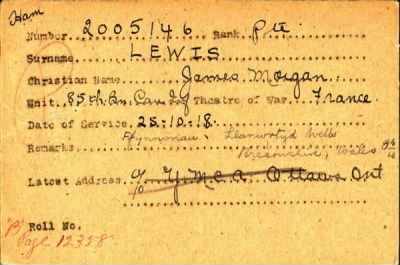 Ham
Number 2005146 Rank Pte
Surname LEWIS
Christian Name James Morgan
Unit 85th Bn. Can Inf Theatre of War France
Date of Service 25-10-18
Remarks Llanwrtyd Wells
Wales
Latest Address c/o Y.M.C.A. Ottawa Ont
Roll No.
"B" Page 12328